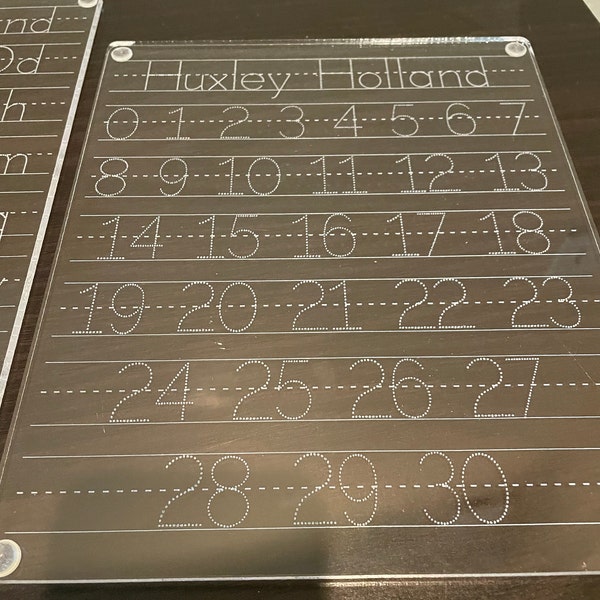 Huxley Holland
0 1 2 3 4 5 6 7
8 9 10 11 12 13
14 15 16 17 18
19 20 21 22 23
24 25 26 27
28 29 30
nd
Dd
h
m